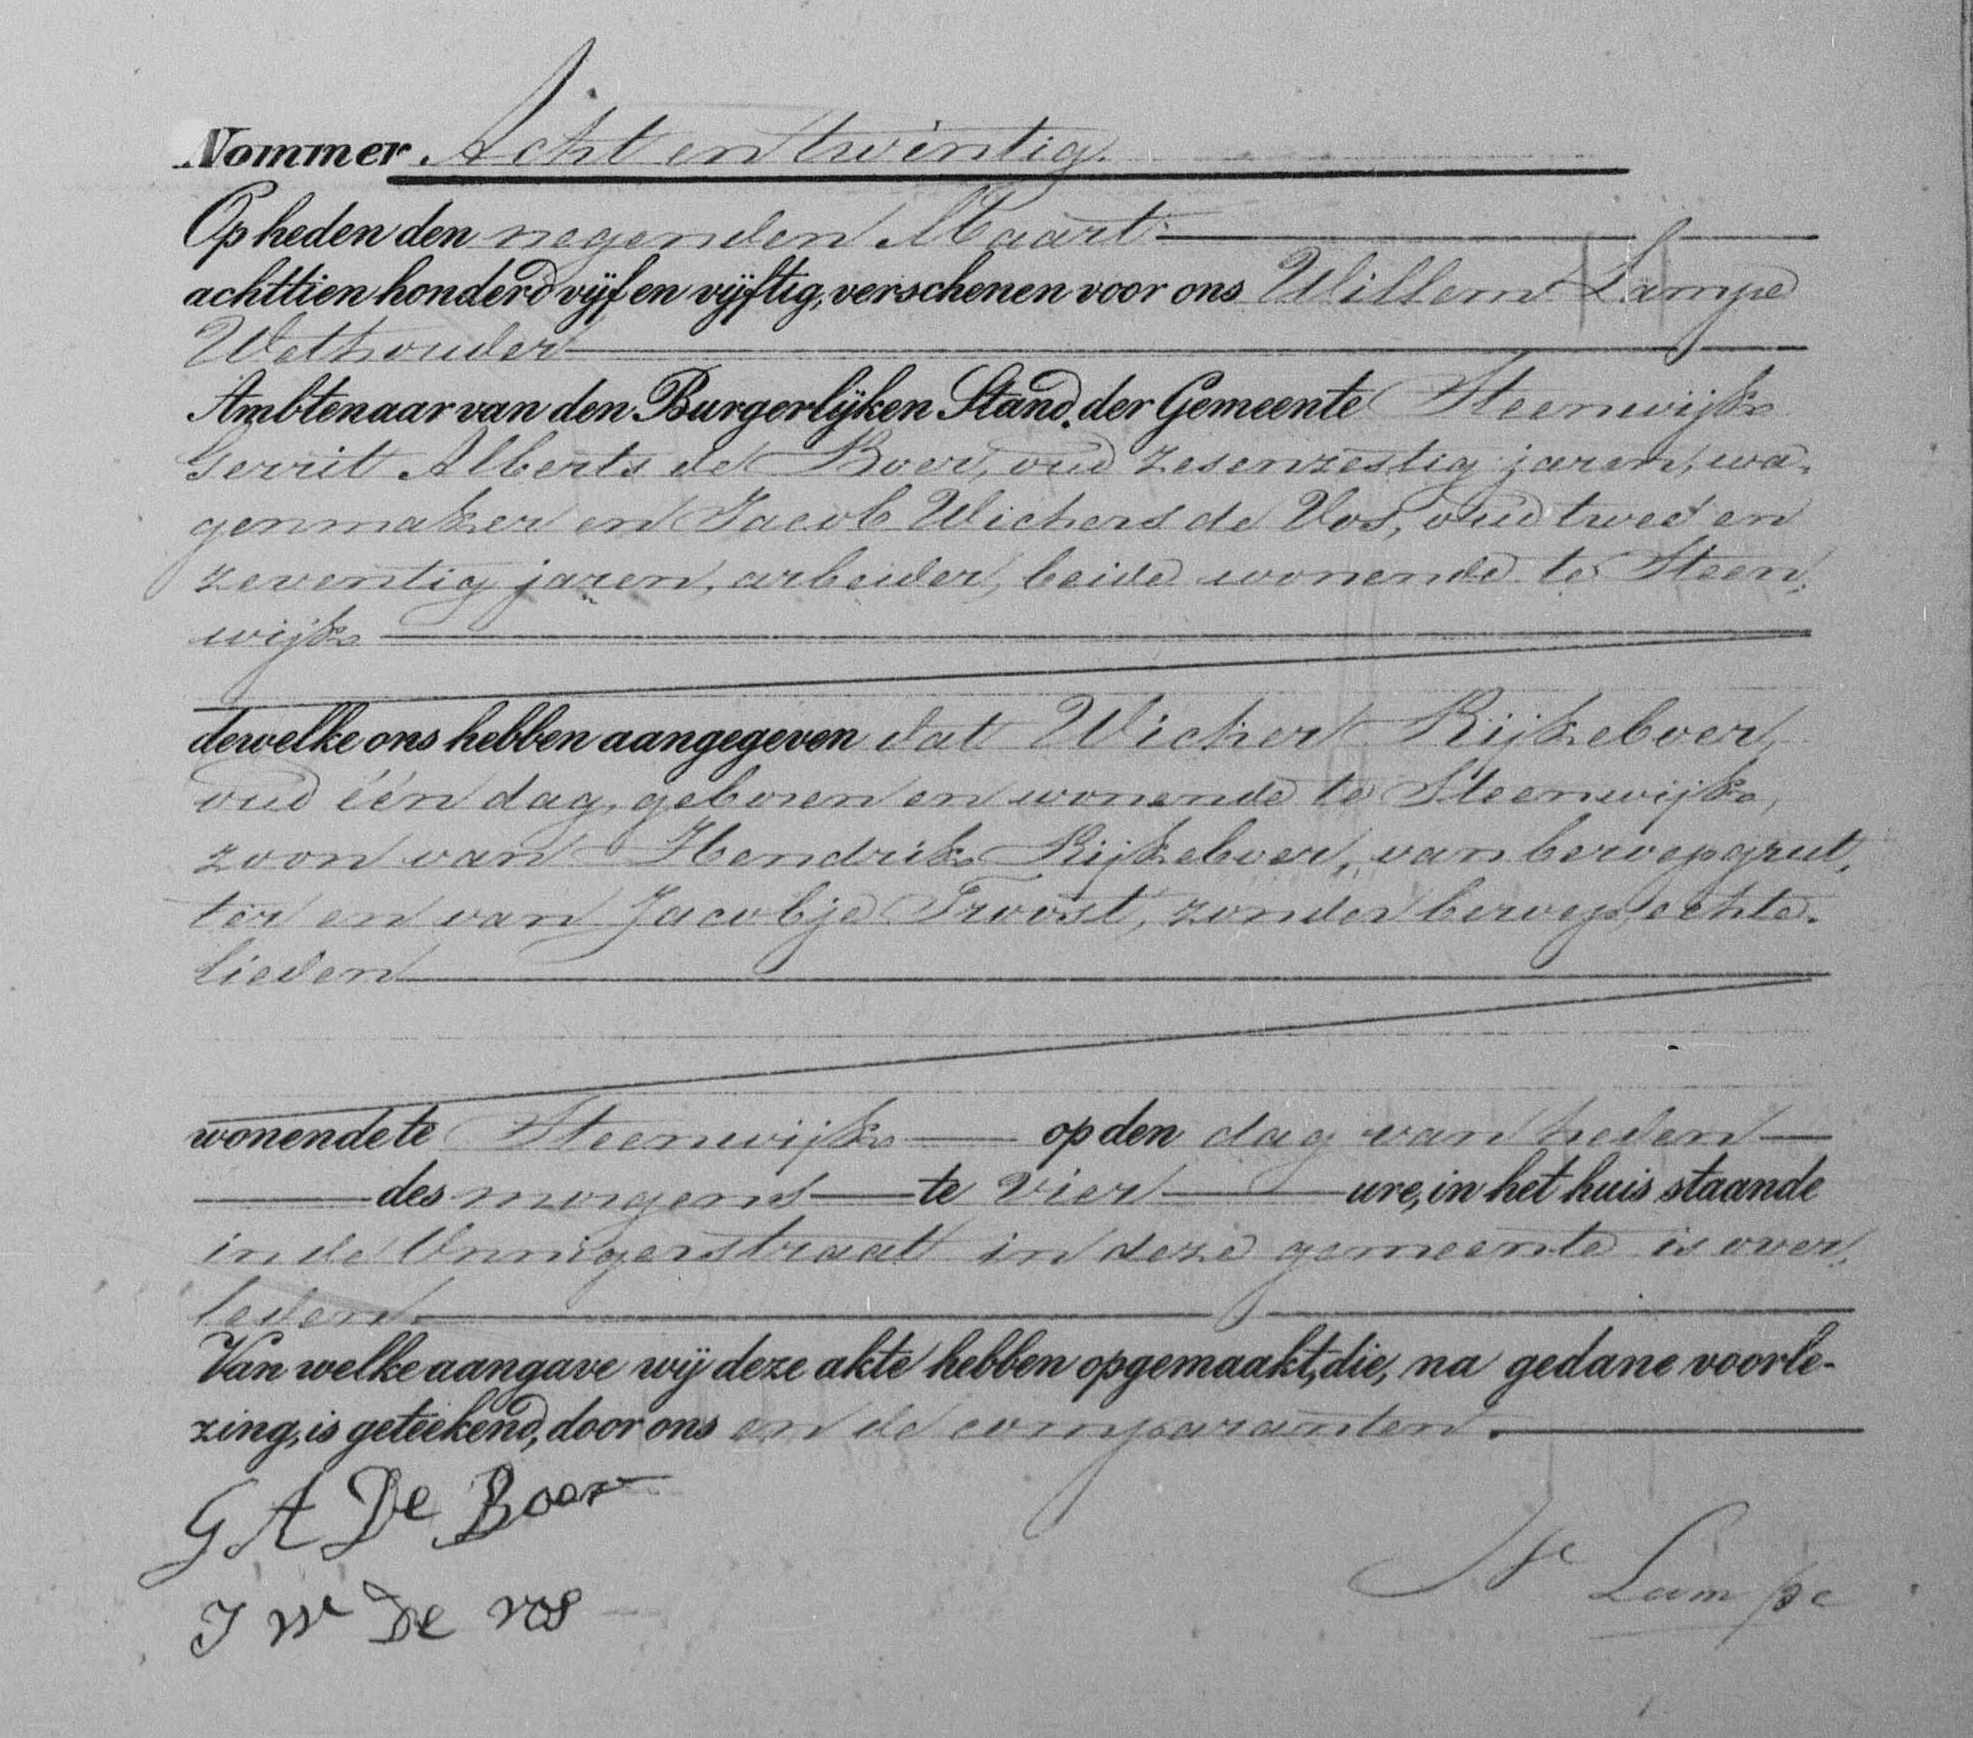 Nommer Acht en twintig.
Op heden den negenden Maart
achttien honderd vyf en vyftig, verschenen voor ons Willem Lampe
Wethouder
Ambtenaar van den Burgerlyken Stand, der Gemeente Steenwijk
Gerrit Alberts de Boer, oud zesenzestig jaren, wa-
genmaker en Jacob Wichers de Vos, oud twee en
zeventig jaren, arbeider, beide wonende te Steen-
wijk
dewelke ons hebben aangegeven dat Wicher Rijkeboer,
oud één dag, geboren en wonende te Steenwijk,
zoon van Hendrik Rijkeboer, van beroep grut-
ter en van Jacobje Troost, zonder beroep, echte-
lieden
wonende te Steenwijk op den dag van heden
des morgens te vier ure, in het huis staande
in de Onnigerstraat in deze gemeente is over-
leden.
Van welke aangave wy deze akte hebben opgemaakt, die, na gedane voorle-
zing, is geteekend, door ons en de comparanten.
G A De Boer
J W De vos
W Lampe